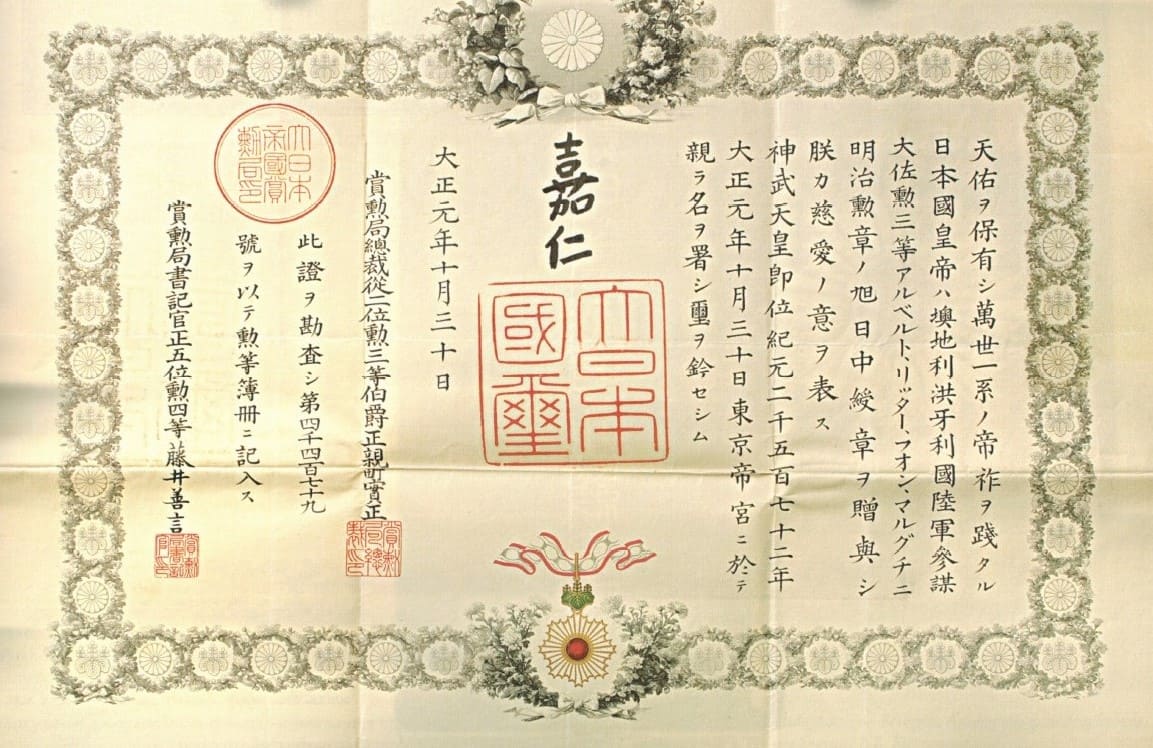 天佑ヲ保有シ萬世一系ノ帝祚ヲ踐タル
日本國皇帝ハ墺地利洪牙利國陸軍參謀
大佐勲三等アルベルト、リッター、フオン、マルグチニ
明治勲章ノ旭日中綬章ヲ贈與シ
朕カ慈愛ノ意ヲ表ス
神武天皇即位紀元二千五百七十二年
大正元年十月三十日東京帝宮ニ於テ
親ラ名ヲ署シ璽ヲ鈐セシム
嘉仁
大日本
國璽
大正元年十月三十日
賞勲局總裁從二位勲三等伯爵正親町實正
賞勲局總裁印
此證ヲ勘査シ第四千四百七十九
號ヲ以テ勲等簿冊ニ記入ス
大日本
帝國賞
勲局印
賞勲局書記官正五位勲四等藤井善言
賞勲局書記官印